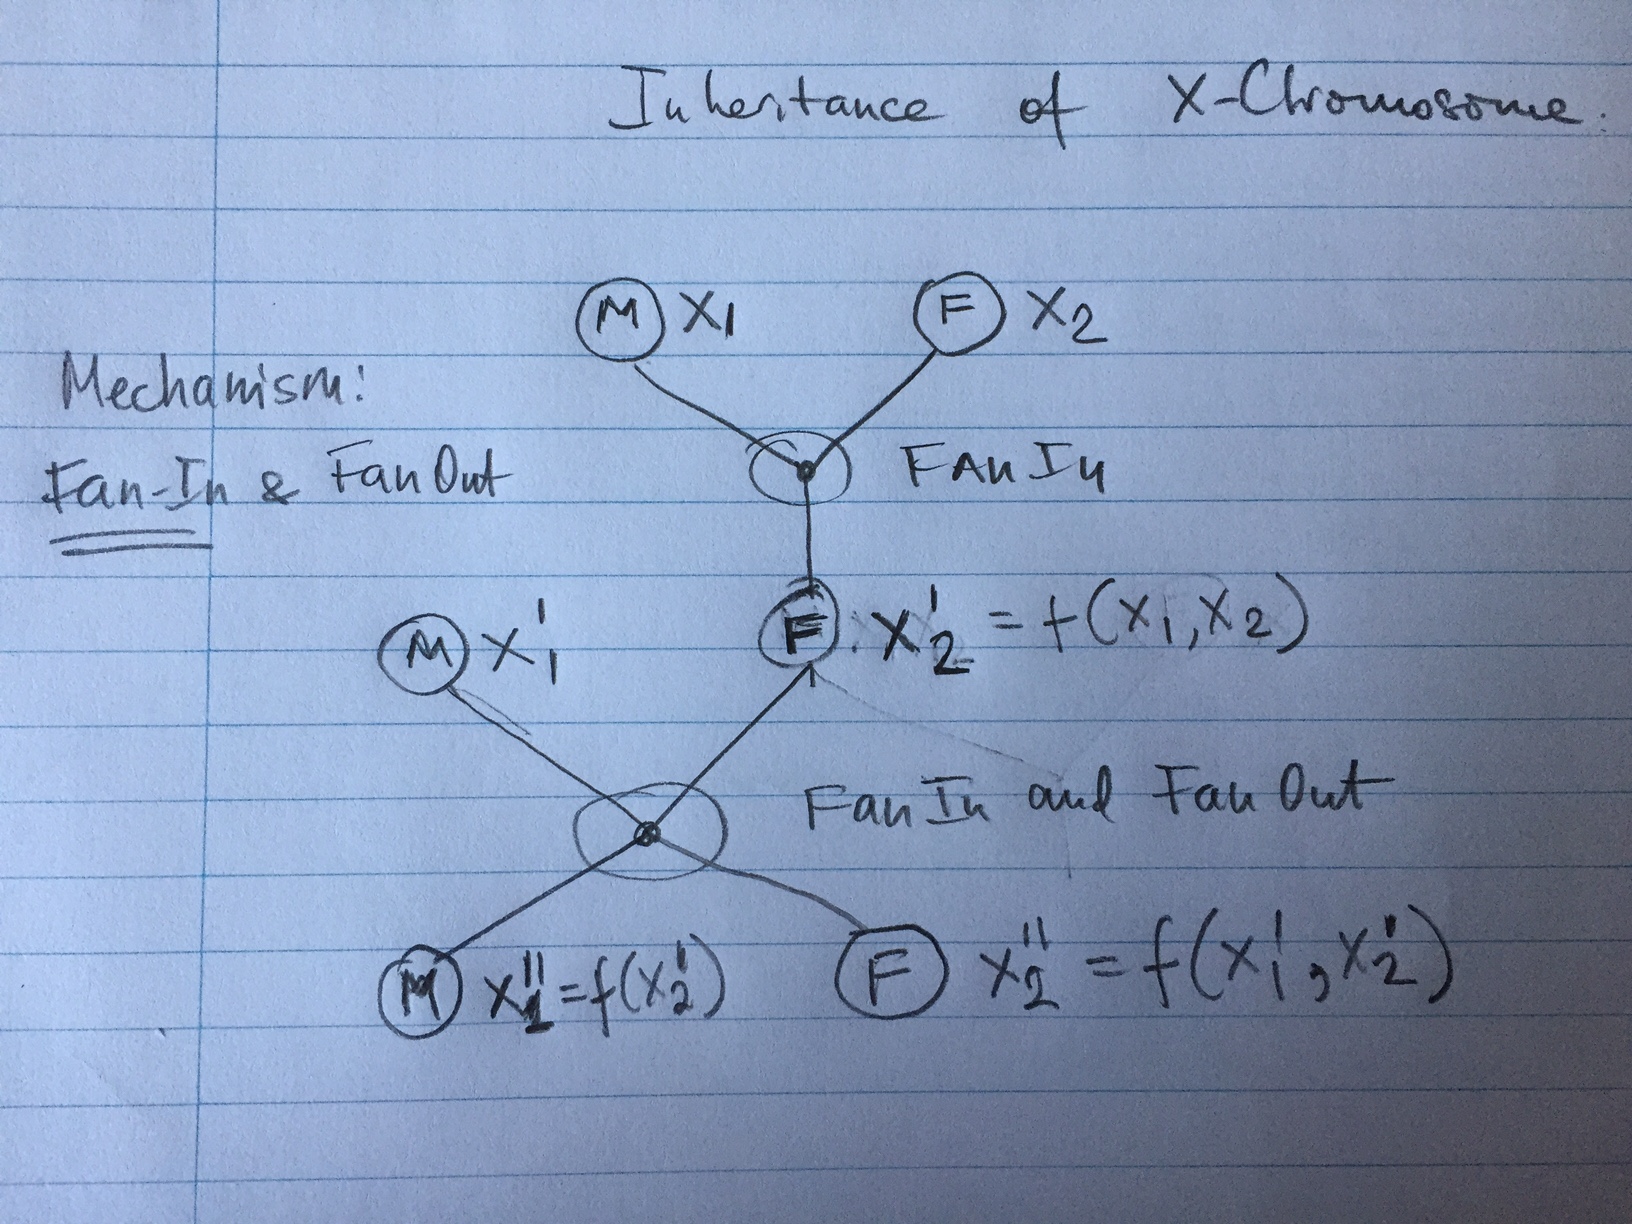 Inheritance of X-Chromosome.
M X1 F X2
Mechanism:
Fan-In & Fan Out
FAN IN
M X1' F : X2' = f(X1, X2)
Fan In and Fan Out
M X1'' = f(X2') F X2'' = f(X1', X2')